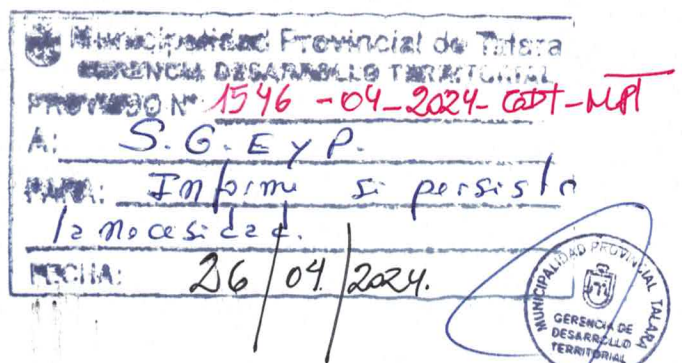 Municipalidad Provincial de Talara
GERENCIA DESARROLLO TERRITORIAL
PROVEIDO N° 1546 -04-2024-GDT-MPT
A: S.G. E y P.
PARA: Informe si persiste
la necesidad.
FECHA: 26/04/2024.
MUNICIPALIDAD PROVINCIAL TALARA
GERENCIA DE
DESARROLLO
TERRITORIAL